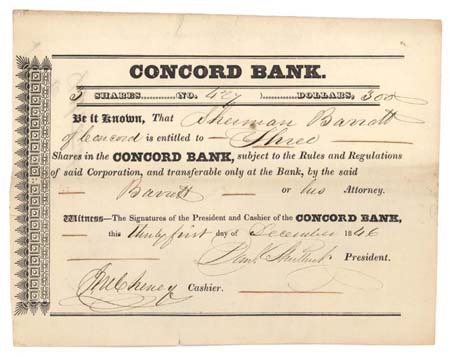 CONCORD BANK.
3 SHARES............NO. 429 DOLLARS, 300
Be it Known, That Sherman Barrett
of Concord is entitled to Three
Shares in the CONCORD BANK, subject to the Rules and Regulations
of said Corporation, and transferable only at the Bank, by the said
Barrett or his Attorney.
Witness—The Signatures of the President and Cashier of the CONCORD BANK,
this thirty first day of December 1846
President.
J M Cheney Cashier.